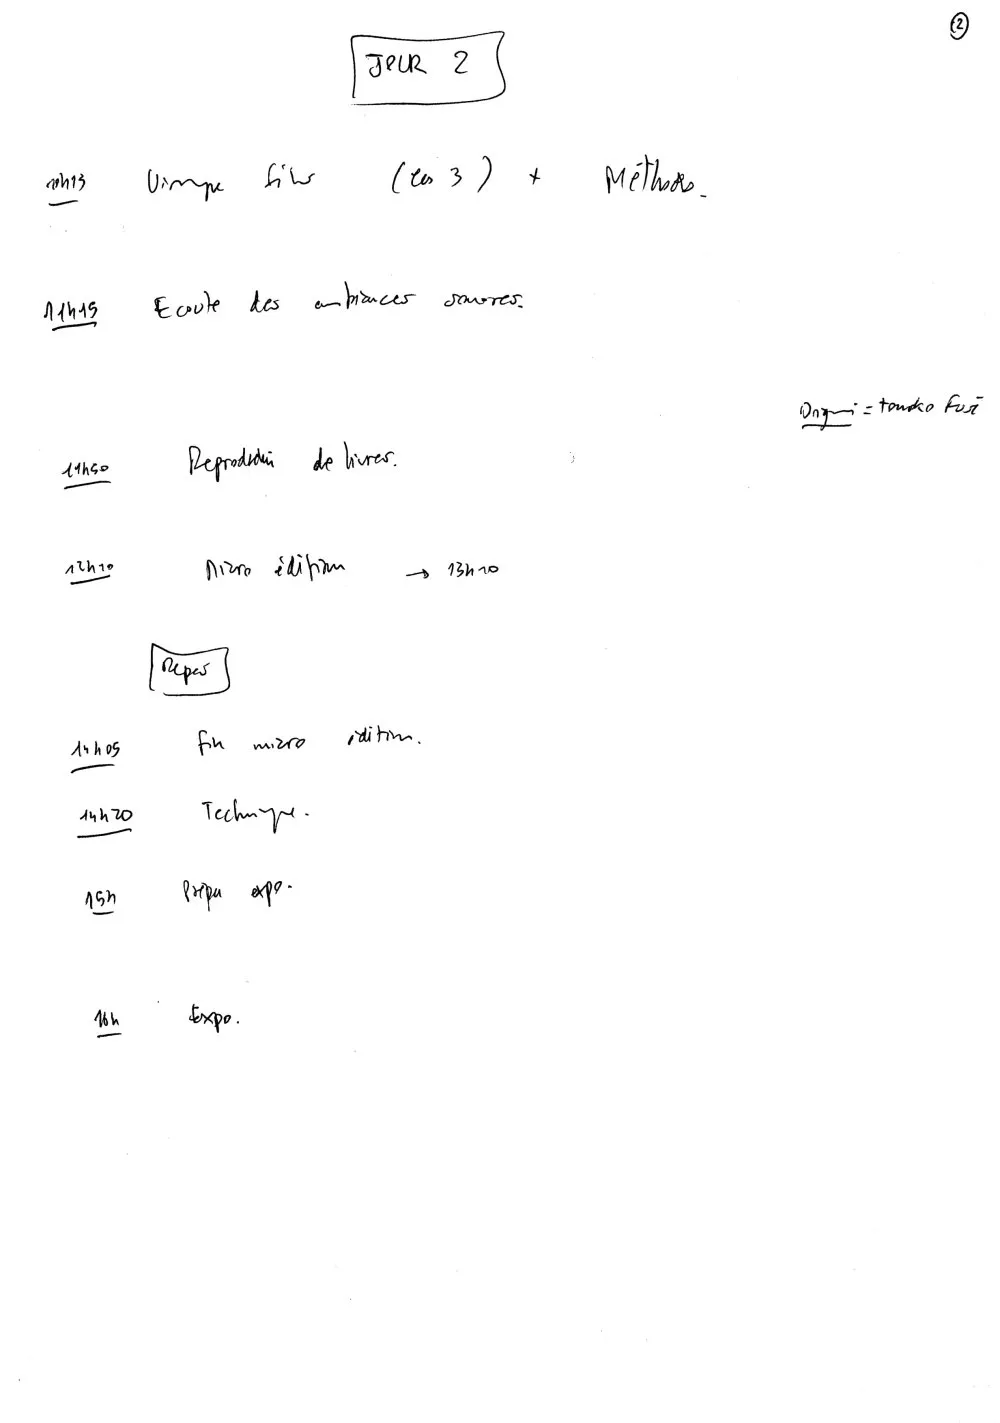 ②
JOUR 2
10h13 film (les 3) + Méthodes.
11h15 Ecoute des ambiances sonores.
Origami = tomoko Fusé
11h50 Reproduction de livres.
12h10 Micro édition → 13h10
Repas
14h05 fin micro édition.
14h20 Technique.
15h Prépa expo.
16h Expo.